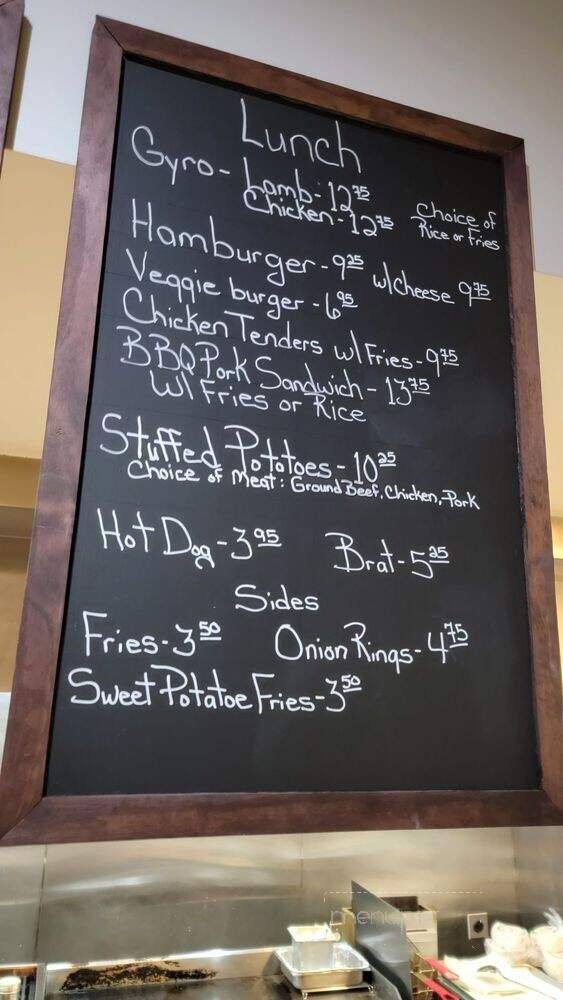 Lunch
Gyro - Lamb - 12 75
Chicken - 12 75 Choice of
Rice or Fries
Hamburger - 9 25 w/cheese 9 75
Veggie burger - 6 95
Chicken Tenders w/ Fries - 9 75
BBQ Pork Sandwich - 13 75
w/ Fries or Rice
Stuffed Potatoes - 10 25
Choice of meat: Ground Beef, Chicken, Pork
Hot Dog - 3 95 Brat - 5 25
Sides
Fries - 3 50 Onion Rings - 4 75
Sweet Potatoe Fries - 3 50